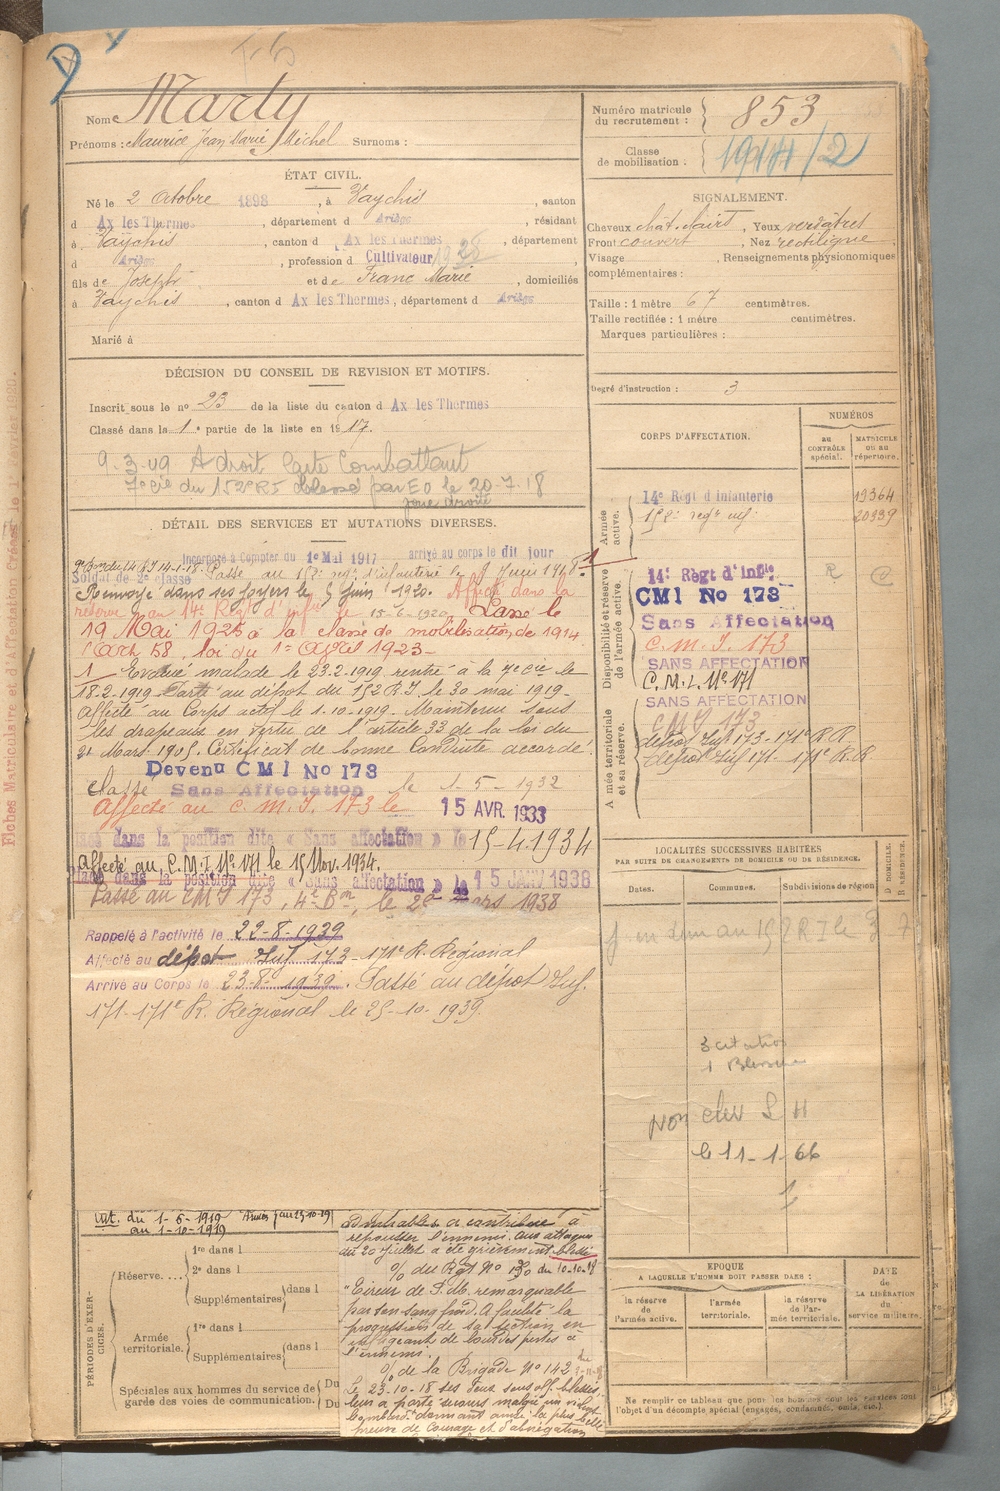 Nom Marty
Prénoms : Maurice Jean Marie Michel Surnoms :
Numéro matricule du recrutement : 853
Classe de mobilisation : 1914/2
ÉTAT CIVIL.
Né le 2 Octobre 1898, à Vaychis, canton
d Ax les Thermes, département d Ariège, résidant
à Vaychis, canton d Ax les Thermes, département
d Ariège, profession d Cultivateur
fils de Joseph et de Franc Marie, domiciliés
à Vaychis, canton d Ax les Thermes, département d Ariège
Marié à
SIGNALEMENT.
Cheveux chât. clairs, Yeux verdâtres
Front couvert, Nez rectiligne
Visage , Renseignements physionomiques
complémentaires :
Taille : 1 mètre 67 centimètres.
Taille rectifiée : 1 mètre centimètres.
Marques particulières :
Degré d'instruction : 3
DÉCISION DU CONSEIL DE REVISION ET MOTIFS.
Inscrit sous le n° 23 de la liste du canton d Ax les Thermes
Classé dans la 1e partie de la liste en 1917.
9-3-49 A droit Carte Combattant
7e cie du 152e RI blessé par EO le 20-7-18
joue droite
DÉTAIL DES SERVICES ET MUTATIONS DIVERSES.
Incorporé à Compter du 1er Mai 1917 arrivé au corps le dit jour
Soldat de 2e classe
Passé au 152e regt d'infanterie le
Renvoyé dans ses foyers le 5 juin 1920. Affecté dans la
réserve au 14e Régt d'infie le 15-6-1920. Passé le
19 Mai 1925 à la classe de mobilisation de 1914
(Art 58, loi du 1er Avril 1923-
1 Evacué malade le 23.2.1919 rentré à la 7e Cie le
18-2-1919 Parti au dépôt du 152 R.I. le 30 mai 1919-
Affecté au Corps actif le 1.10.1919. Maintenu sous
les drapeaux en vertu de l'article 33 de la loi du
21 Mars 1905. Certificat de bonne Conduite accordé.
Devenu CMI No 173
Classé Sans Affectation le 1-5-1932
Affecté au C.M.I. 173 le 15 AVR. 1933
dans la position dite « Sans affectation » le 15-4-1934
Affecté au C.M.I N° 171 le 15 Nov. 1934.
dans la position dite « Sans affectation » le 15 JANV 1938
Passé au CMI 173, 4e Bon, le 20 Mars 1938
Rappelé à l'activité le 22-8-1939
Affecté au dépôt Inf 173-171e R. Régional
Arrivé au Corps le 23-8-1939. Passé au dépôt Inf.
171-171e R. Régional le 25-10-1939.
CORPS D'AFFECTATION.
NUMÉROS
AU CONTRÔLE spécial.
MATRICULE OU AU répertoire.
Armée active.
14e Régt d'Infanterie 19364
152e regt inf. 20339
Disponibilité et réserve de l'armée active.
14e Régt d'Infie
CMI No 173
Sans Affectation
C.M.I. 173
SANS AFFECTATION
C.M.I. N° 171
SANS AFFECTATION
Armée territoriale et sa réserve.
CMI 173
dépôt Inf 173-171e R.R
dépôt Inf 171-171e R.R
LOCALITÉS SUCCESSIVES HABITÉES
PAR SUITE DE CHANGEMENTS DE DOMICILE OU DE RÉSIDENCE.
Dates. Communes. Subdivisions de région
D DOMICILE. R RÉSIDENCE.
3 citations
1 Blessure
Non chev L H
le 11-1-66
Int. du 1-6-1919
au 1-10-1919
PÉRIODES D'EXERCICES.
Réserve....
1re dans l
2e dans l
Supplémentaires dans l
Armée territoriale.
1re dans l
Supplémentaires dans l
Spéciales aux hommes du service de garde des voies de communication. Du Du
admirables a contribué à
repousser l'ennemi aux attaques
du 20 juillet a été grièvement blessé
% du Rgt N° 130 du 10-10-18
"Tireur de F.M. remarquable
par son sang froid. A facilité la
progression de sa section en
infligeant de lourdes pertes à
l'ennemi.
% de la Brigade N° 142
Le 23-10-18 ses deux sous off. blessés,
leur a porté secours malgré un violent
bombardt donnant ainsi la plus belle
preuve de courage et d'abnégation
EPOQUE
A LAQUELLE L'HOMME DOIT PASSER DANS :
la réserve de l'armée active.
l'armée territoriale.
la réserve de l'armée territoriale.
DATE de LA LIBÉRATION du service militaire.
Ne remplir ce tableau que pour les hommes dont les services font
l'objet d'un décompte spécial (engagés, condamnés, omis, etc.)